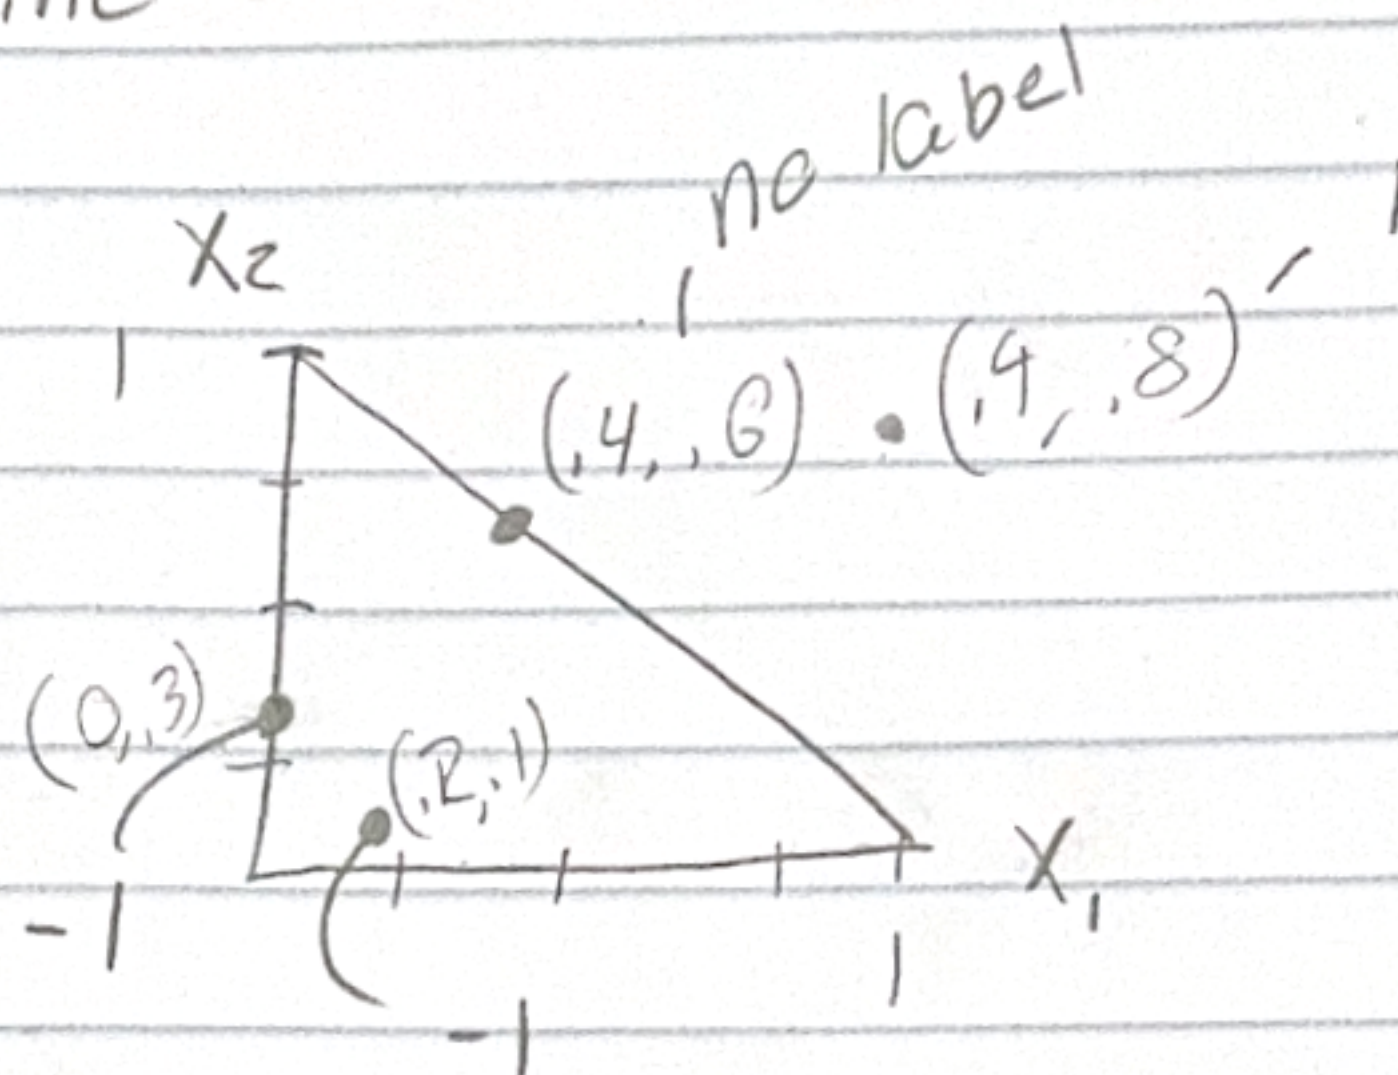 no label
X2
1
(.4, .6)
(.4, .8)
(0, .3)
(.2, .1)
X1
-1
1
-1